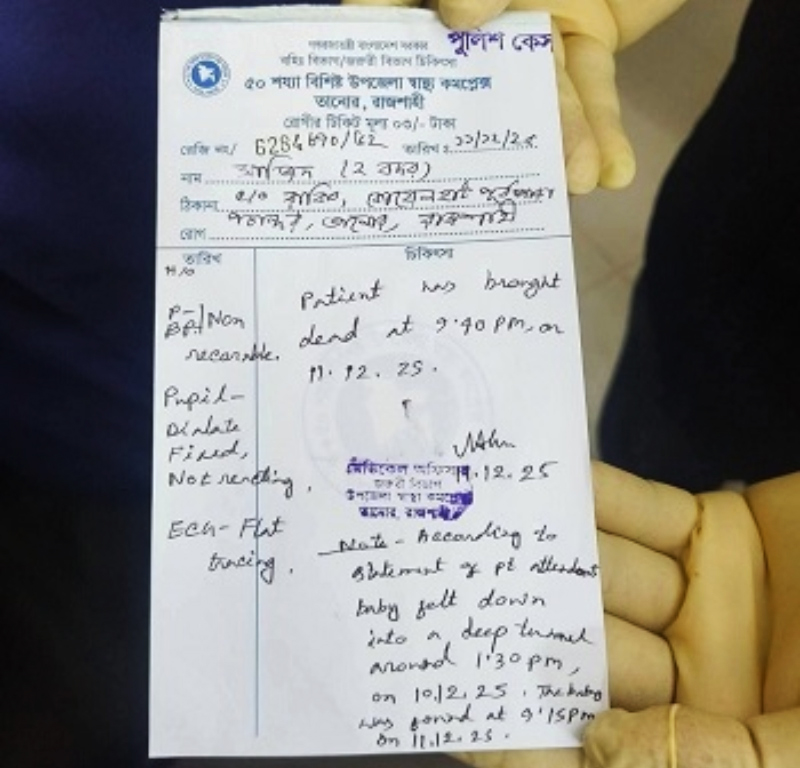 পুলিশ কেস
গণপ্রজাতন্ত্রী বাংলাদেশ সরকার
বহিঃ বিভাগ/জরুরী বিভাগ চিকিৎসা
৫০ শয্যা বিশিষ্ট উপজেলা স্বাস্থ্য কমপ্লেক্স
তানোর, রাজশাহী
রোগীর টিকিট মূল্য ০৩/- টাকা
রেজি নং/ তারিখ : ১১/১২/২৫
নাম (২ বছর)
ঠিকানা
তানোর, রাজশাহী
রোগ
তারিখ চিকিৎসা
H/O
Patient has brought
dead at 9.40 pm, on
11.12.25.
P-
BP- Non
recorable.
Pupil-
Dialate
Fixed,
Not reacting.
ECG- Flat
tracing.
11.12.25
মেডিকেল অফিসার
জরুরী বিভাগ
উপজেলা স্বাস্থ্য কমপ্লেক্স
তানোর, রাজশাহী
Note - According to
statement of pt attendent
baby felt down
into a deep tunnel
around 1.30 pm,
on 10.12.25. The baby
was found at 9.15 pm
on 11.12.25.